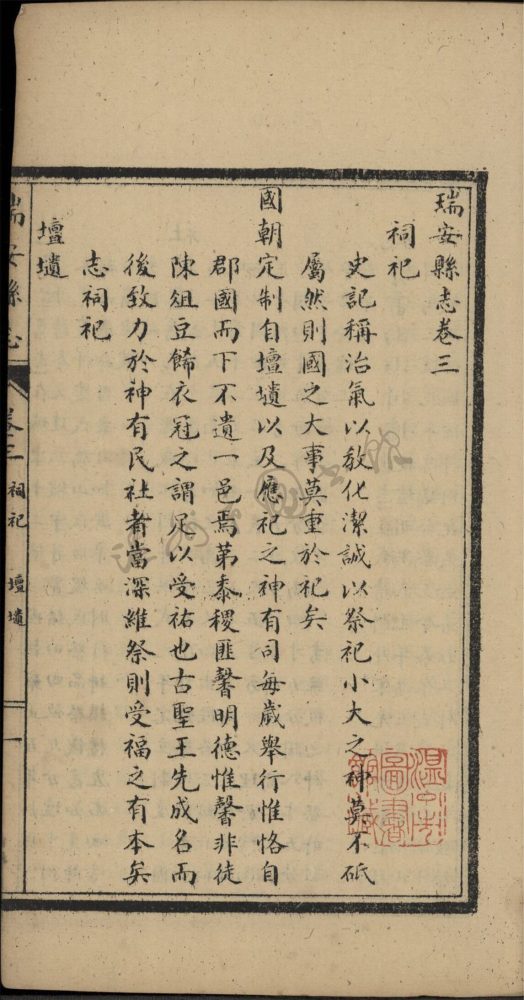 瑞安縣志卷三
祠祀
史記稱治氣以敎化潔誠以祭祀小大之神莫不砥
屬然則國之大事莫重於祀矣
國朝定制自壇壝以及應祀之神有司每歲舉行惟恪自
郡國而下不遺一邑焉第黍稷匪馨明德惟馨非徒
陳俎豆餙衣冠之謂足以受祐也古聖王先成名而
後致力於神有民社者當深維祭則受福之有本矣
志祠祀
壇壝
瑞安縣志
卷三 祠祀 壇壝 一
溫州市
圖書
館藏